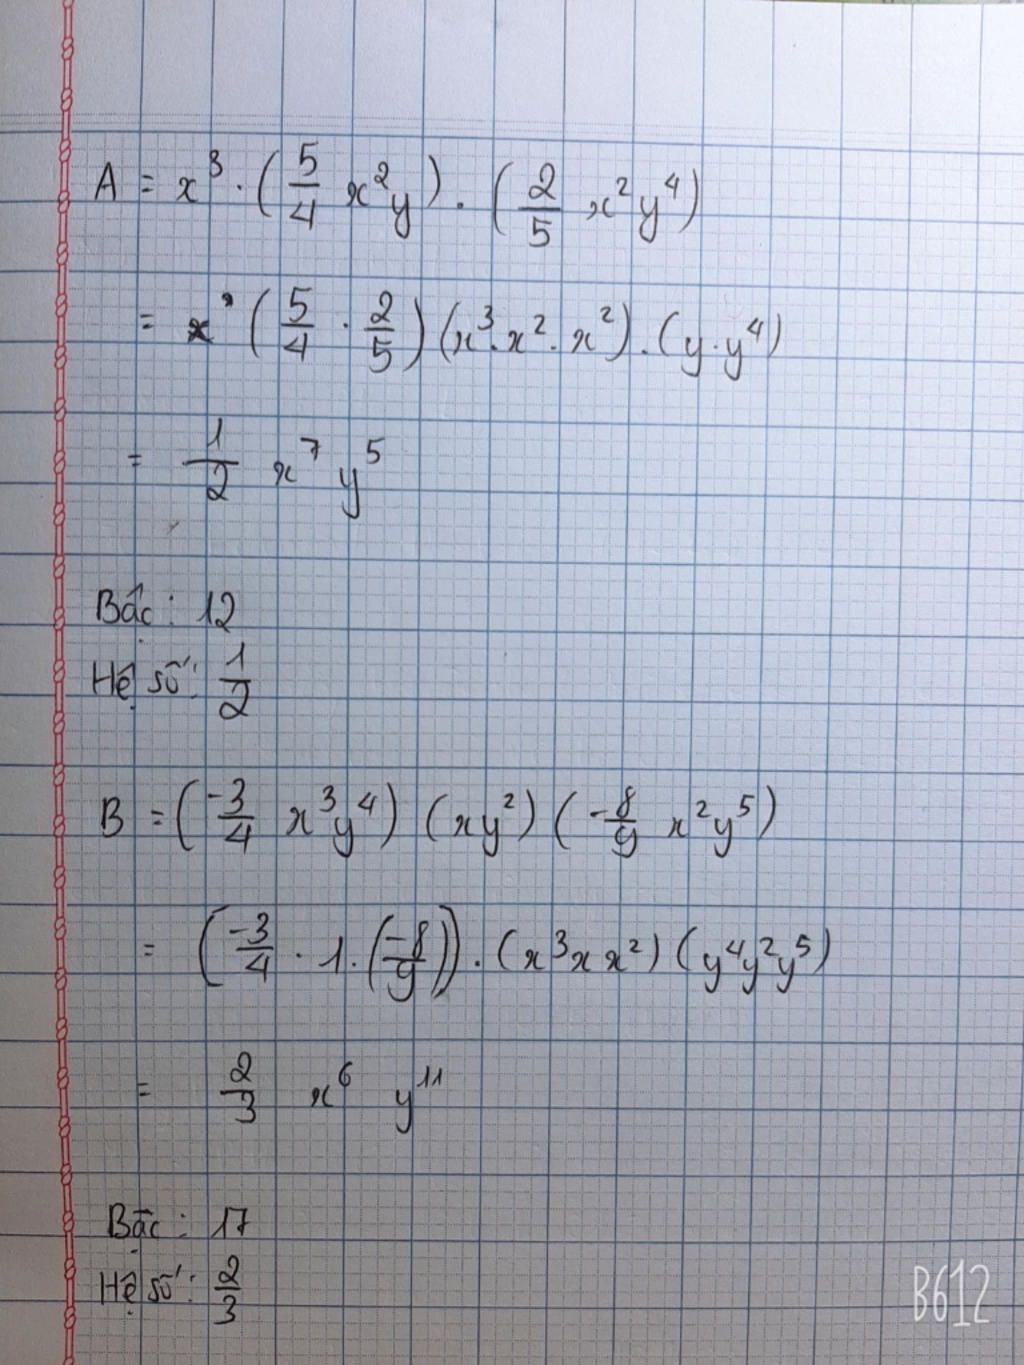 A = x³ · (5/4 x²y) · (2/5 x²y⁴)
= x (5/4 · 2/5) (x³ · x² · x²) · (y · y⁴)
= 1/2 x⁷ y⁵
Bậc : 12
Hệ số : 1/2
B = (-3/4 x³y⁴) (xy²) (-8/9 x²y⁵)
= (-3/4 · 1 · (-8/9)) · (x³ x x²) (y⁴y²y⁵)
= 2/3 x⁶ y¹¹
Bậc : 17
Hệ số : 2/3
B612